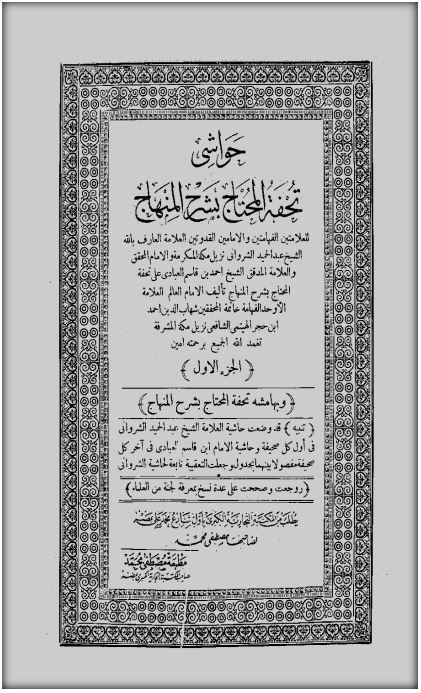 حواشى
تحفة المحتاج بشرح المنهاج
للعلامتين الفهامتين والامامين القدوتين العلامة العارف بالله
الشيخ عبد الحميد الشروانى نزيل مكة المكرمة والامام المحقق
والعلامة المدقق الشيخ احمد بن قاسم العبادى على تحفة
المحتاج بشرح المنهاج تأليف الامام العالم العلامة
الأوحد الفهامة خاتمة المحققين شهاب الدين احمد
ابن حجر الهيتمى الشافعى نزيل مكة المشرفة
تغمد الله الجميع برحمته امين
﴿الجزء الاول﴾
﴿وبهامشه تحفة المحتاج بشرح المنهاج﴾
﴿تنبيه﴾ قد وضعت حاشية العلامة الشيخ عبد الحميد الشروانى
فى أول كل صحيفة وحاشية الامام ابن قاسم العبادى فى آخر كل
صحيفة مفصولا بينهما بجدول وجعلت التعقيبة تابعة لحاشية الشروانى
﴿روجعت وصححت على عدة نسخ بمعرفة لجنة من العلماء﴾
يطلب من المكتبة التجارية الكبرى بأول شارع محمد على بمصر
لصاحبها مصطفى محمد
مطبعة مصطفى محمد
صاحب المكتبة التجارية الكبرى بمصر